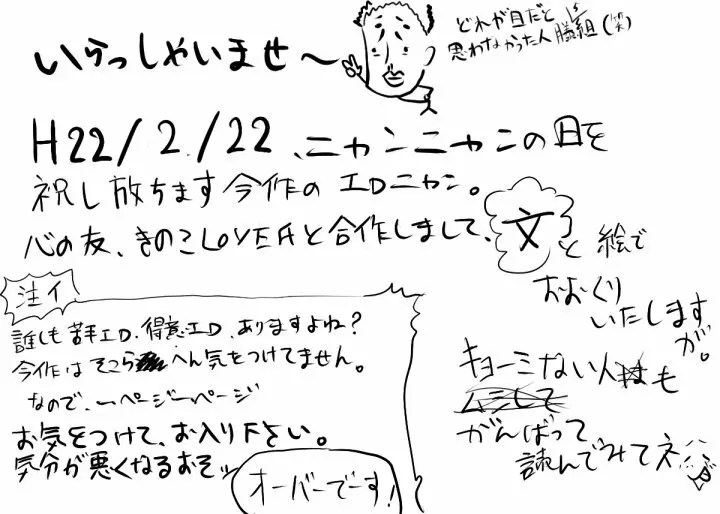 いらっしゃいませ〜
どれが目だと
思わなかった人勝ち組(笑)
H22/2/22、ニャンニャンの日を
祝し放ちます今作のエロニャン。
心の友、きのこLOVERと合作しまして、文と絵で
おおくり
いたします
が。
注イ
誰しも苦手エロ、得意エロ、ありますよね?
今作はそこらへん気をつけてません。
なので、一ページ一ページ
お気をつけて、お入り下さい。
気分が悪くなるおそッ
オーバーでーす!
キョーミない人も
がんばって
読んでみてネ